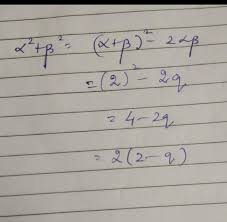 α²+β² = (α+β)² - 2αβ
= (2)² - 2q
= 4 - 2q
= 2(2-q)